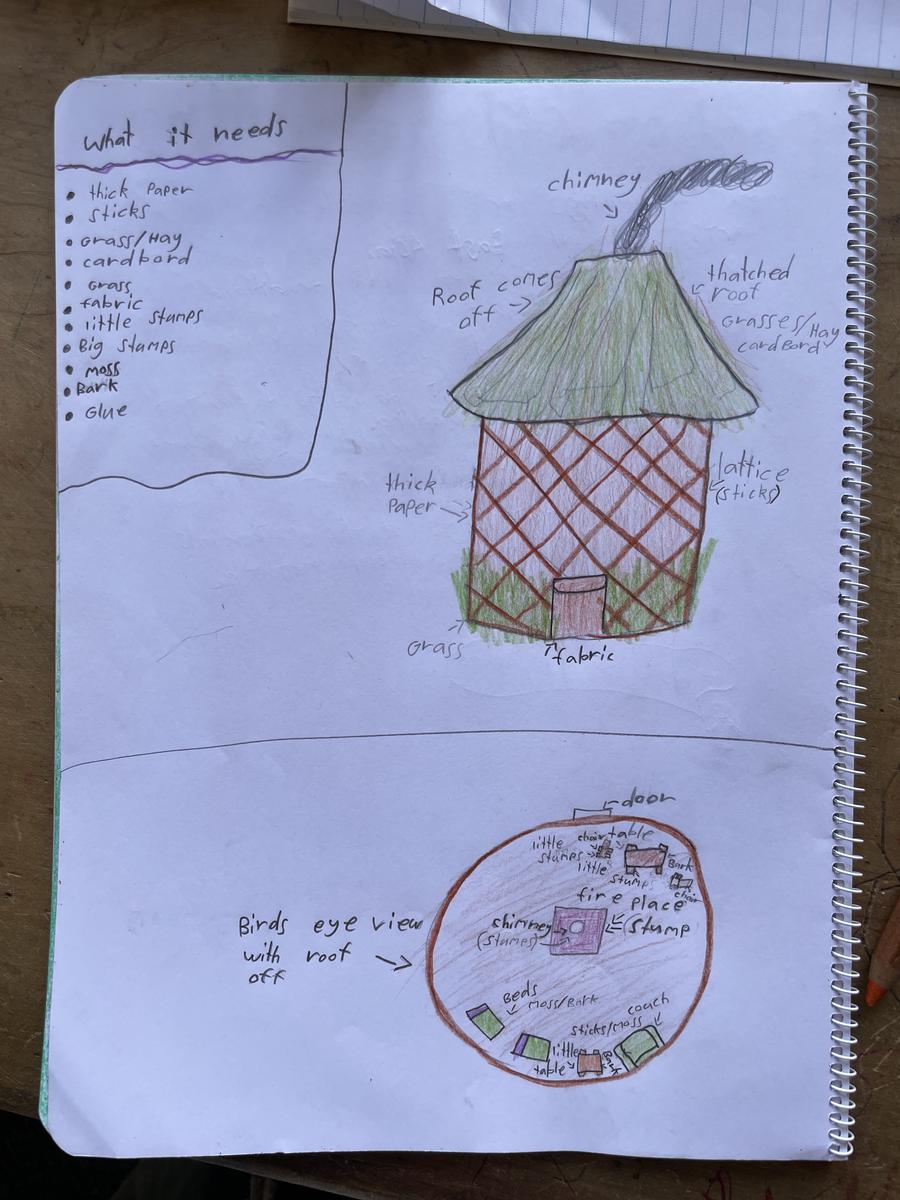 What it needs
thick Paper
sticks
Grass/Hay
cardbord
Grass
fabric
little stamps
Big stamps
moss
Bark
Glue
chimney
Roof comes
off
thatched
roof
Grasses/Hay
cardBord
thick
Paper
lattice
(sticks)
Grass
fabric
door
chair table
little
stumps
little
stumps
Bark
chair
fire place
stump
chimney
(stumps)
Birds eye view
with roof
off
Beds
Moss/Bark
coach
sticks/moss
little
table
Bark